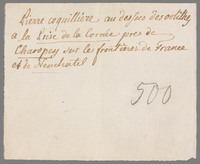 Pierre coquillière au dessus des
a la Prise de la Cornée près de
Charopey sur le frontières de France
et de Neuchatel
500